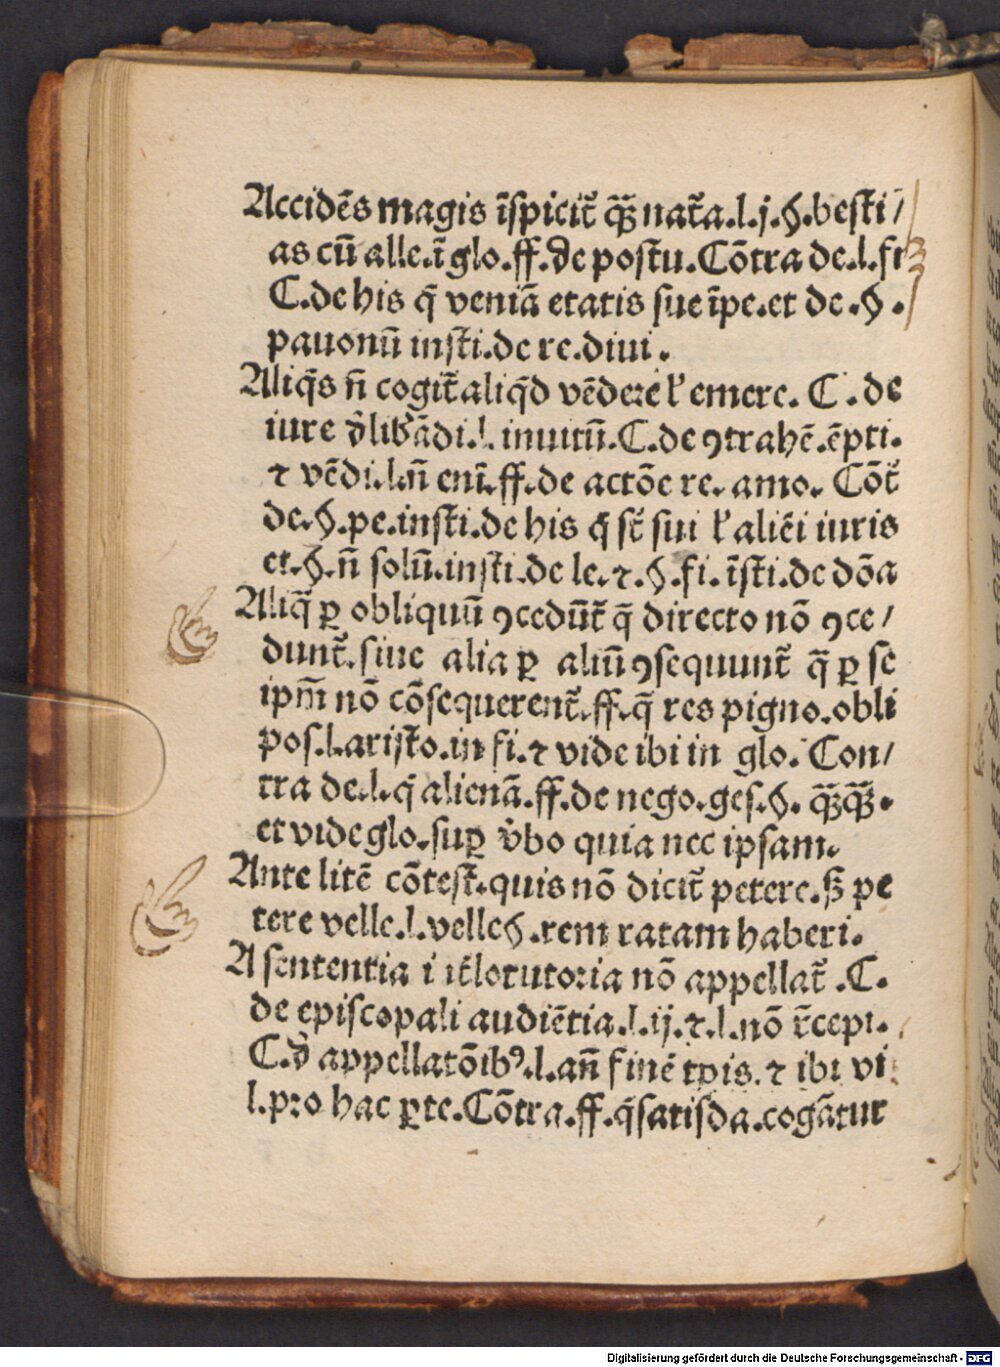 Accidēs magis īspicit̄ q̄ȝ nat̄a.l.j.§.besti/
as cū alle.ī glo.ff.de postu.Cōtra de.l.fi
C.de his q̄ veniā etatis sue īpe.et de.§.
pauonū insti.de re.diui.
Aliq̄s n̄ cogit̄ aliq̄d vēdere ł emere. C. de
iure d̄lib̄ādi.l.inuitū.C.de ꝯtrahē.ēpti.
⁊ vēdi.l.n̄ enī.ff.de actōe re. amo. Cōt̄
de.§.pe.insti.de his q̄ st̄ sui ł aliēi iuris
et.§.n̄ solū.insti.de le.⁊.§.fi.īsti.de dōa
Aliq̄ ꝑ obliquū ꝯcedūt̄ q̄ directo nō ꝯce/
dunt̄.siue alia ꝑ aliū ꝯsequunt̄ q̄ ꝑ se
ipm̄ nō cōsequerent̄.ff.q̄ res pigno.obli
pos.l.aristo.in fi.⁊ vide ibi in glo. Con/
tra de.l.q̄ alienā.ff.de nego.ges.§. q̄ȝq̄ȝ.
et vide glo.suꝑ v̄bo quia nec ipsam.
Ante litē cōtest̄.quis nō dicit̄ petere.sȝ pe
tere velle.l.velle§.rem ratam haberi.
A sententia i it̄locutoria nō appellat̄.C.
de episcopali audiētia.l.ij.⁊.l.nō r̄cepi.
C.d̄ appellatōibꝰ.l.an̄ finē tp̄is.⁊ ibi vi
l.pro hac ꝑte.Cōtra.ff.q̄ satisda.cogātur
Digitalisierung gefördert durch die Deutsche Forschungsgemeinschaft - DFG